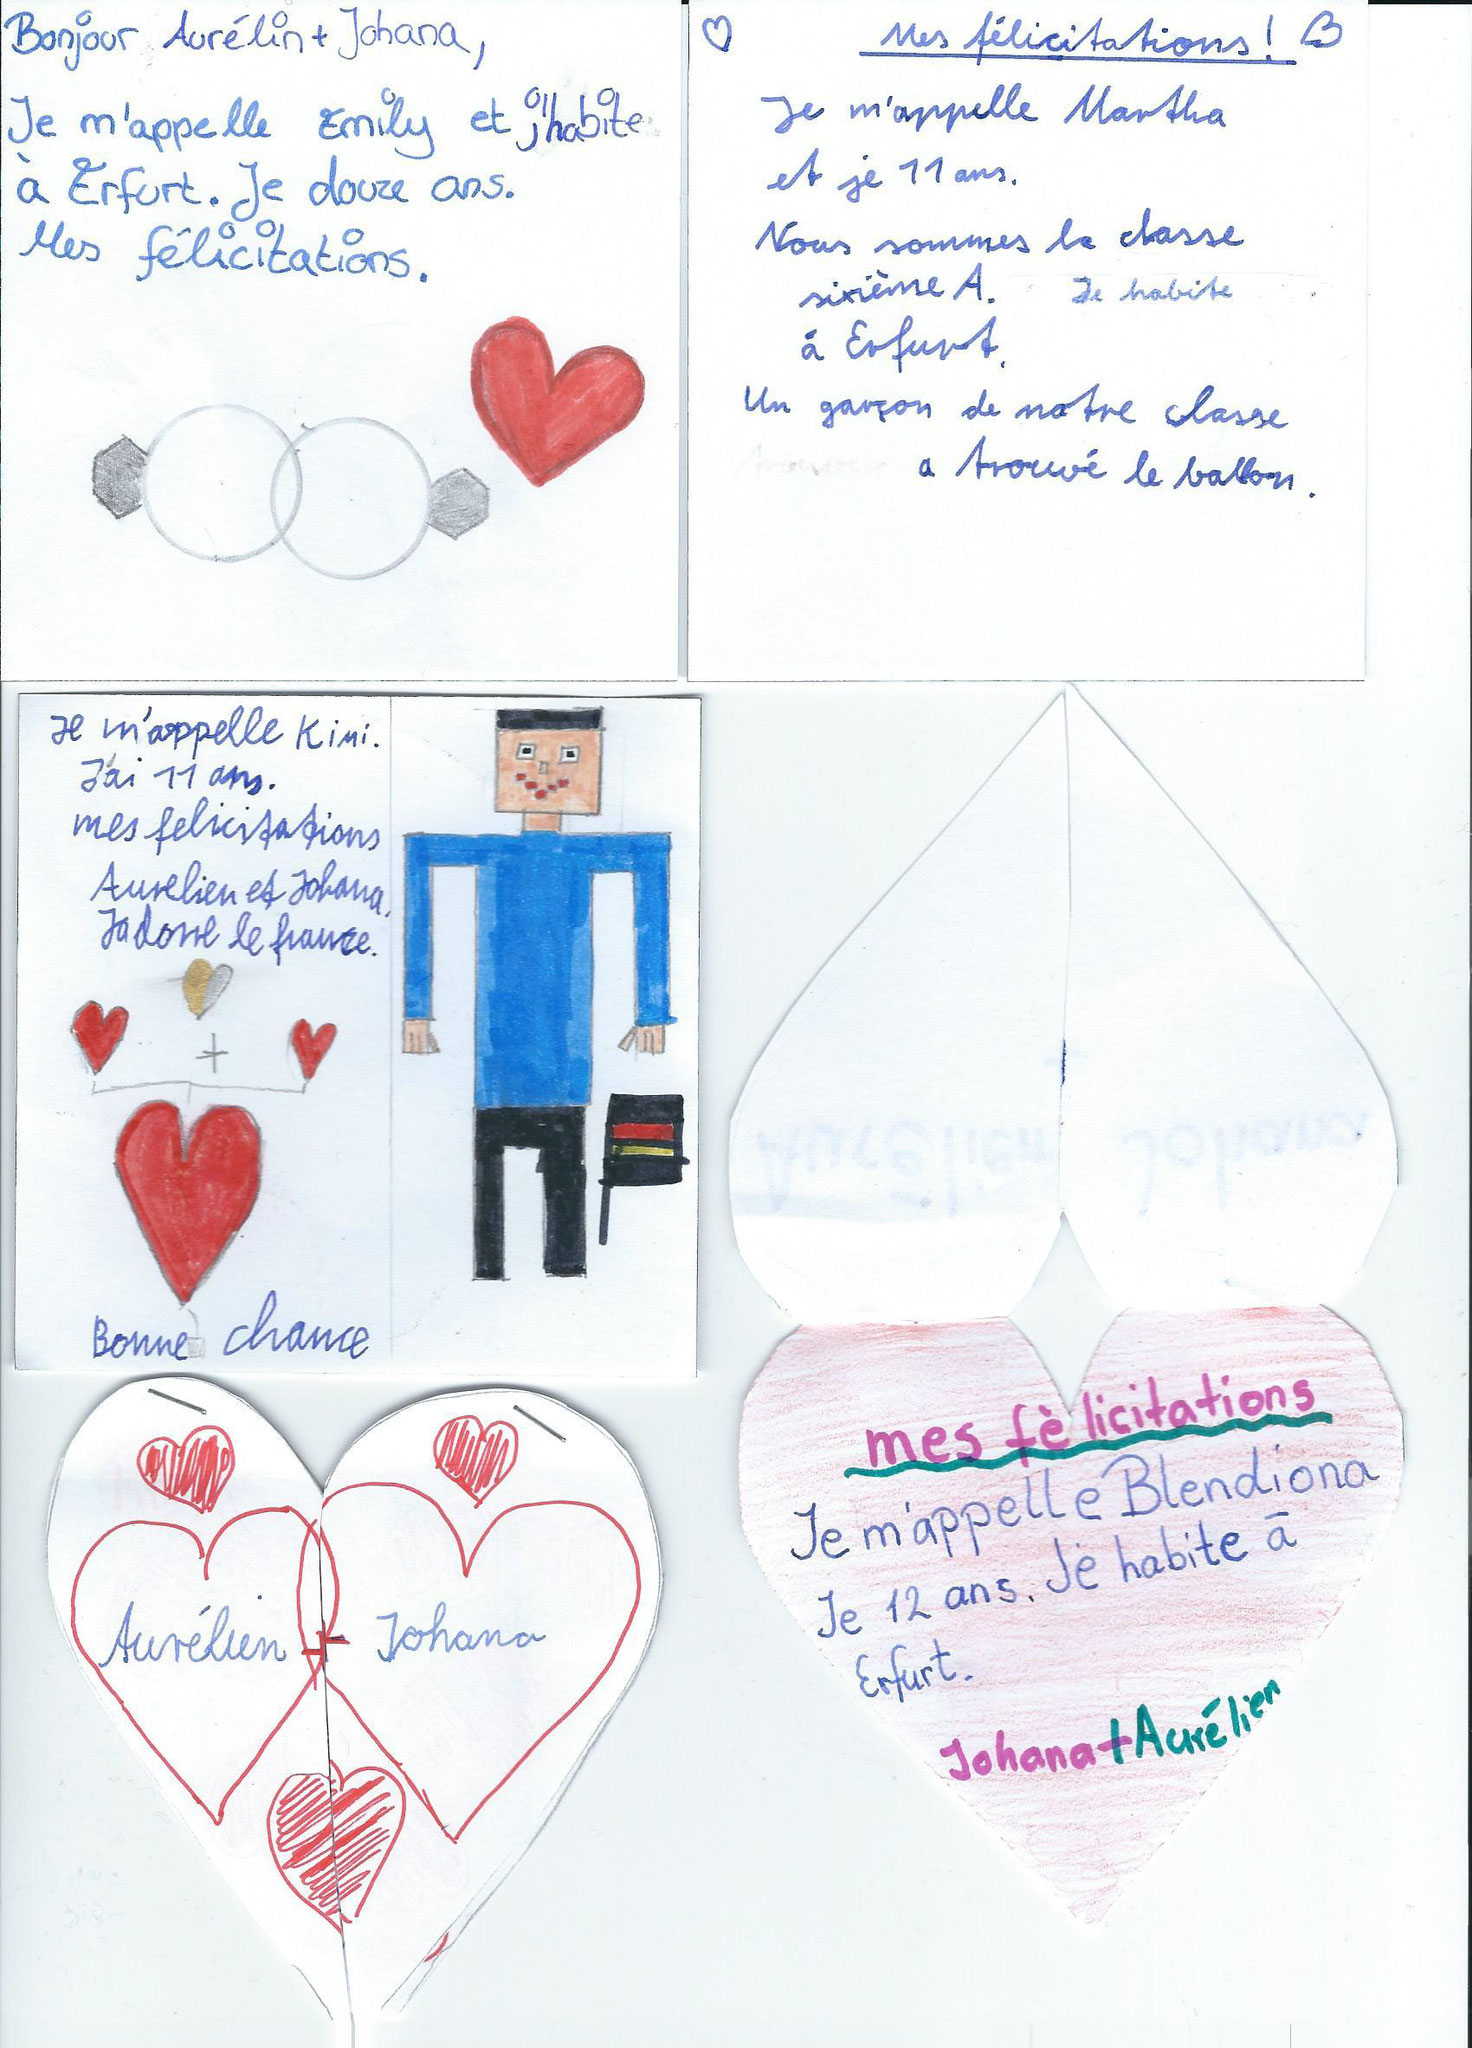 Bonjour Aurélin + Johana,
Je m'appelle Emily et j'habite
à Erfurt. Je douze ans.
Mes félicitations.
Mes félicitations!
Je m'appelle Martha
et je 11 ans.
Nous sommes la classe
sixième A. Je habite
à Erfurt.
Un garçon de notre classe
a trouvé le ballon.
Je m'appelle Kimi.
J'ai 11 ans.
mes felicitations
Aurelien et Johana.
J'adorre le france.
+
Bonne chance
Aurélien Johana
mes fèlicitations
Je m'appelle Blendiona
Je 12 ans. Je habite à
Erfurt.
Johana + Aurélien
Aurélien + Johana